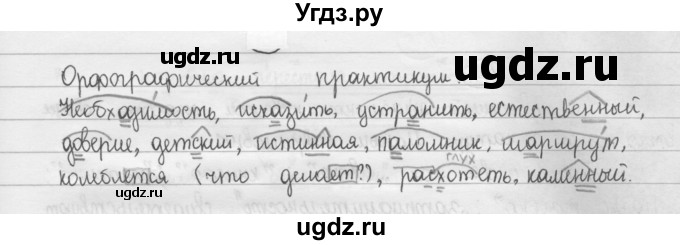 Угдз.ру
ugdz.ru
Орфографический практикум.
ugdz.ru
Необходимость, исказить, устранить, естественный,
доверие, детский, истинная, паломник, маршрут,
глух
колеблется (что делает?), расхотеть, каменный.
ugdz.ru
Угдз.ру